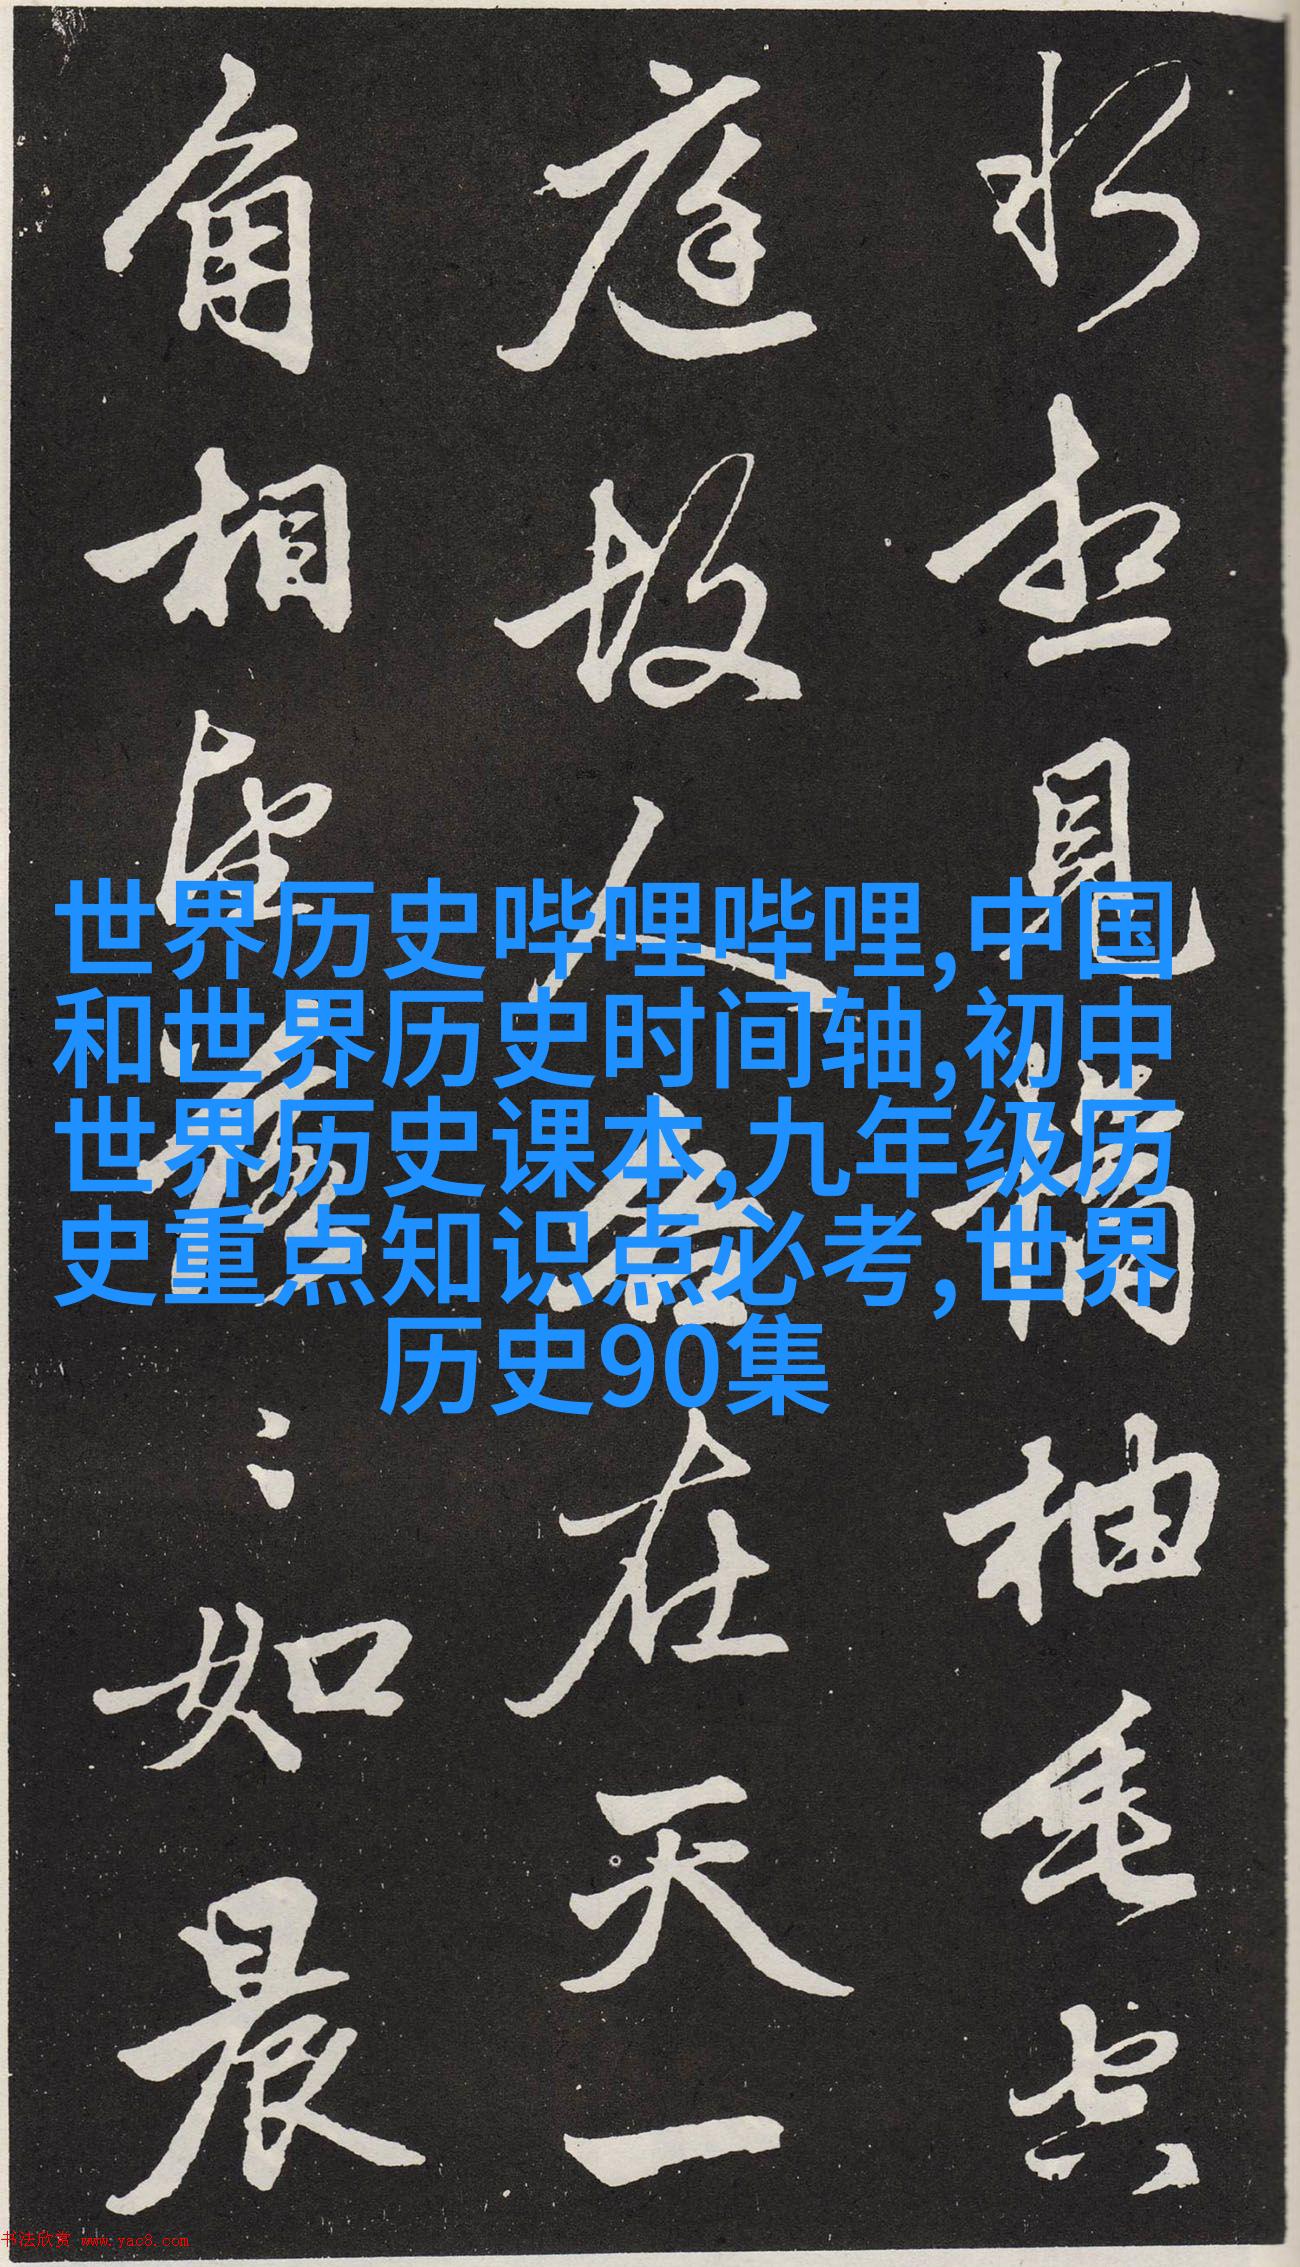 想見橘柚垂空
庭故人各在天一
角相望落〻如晨
世界历史哔哩哔哩,中国
和世界历史时间轴,初中
世界历史课本,九年级历
史重点知识点必考,世界
历史90集
书法欣赏 www.yac8.com